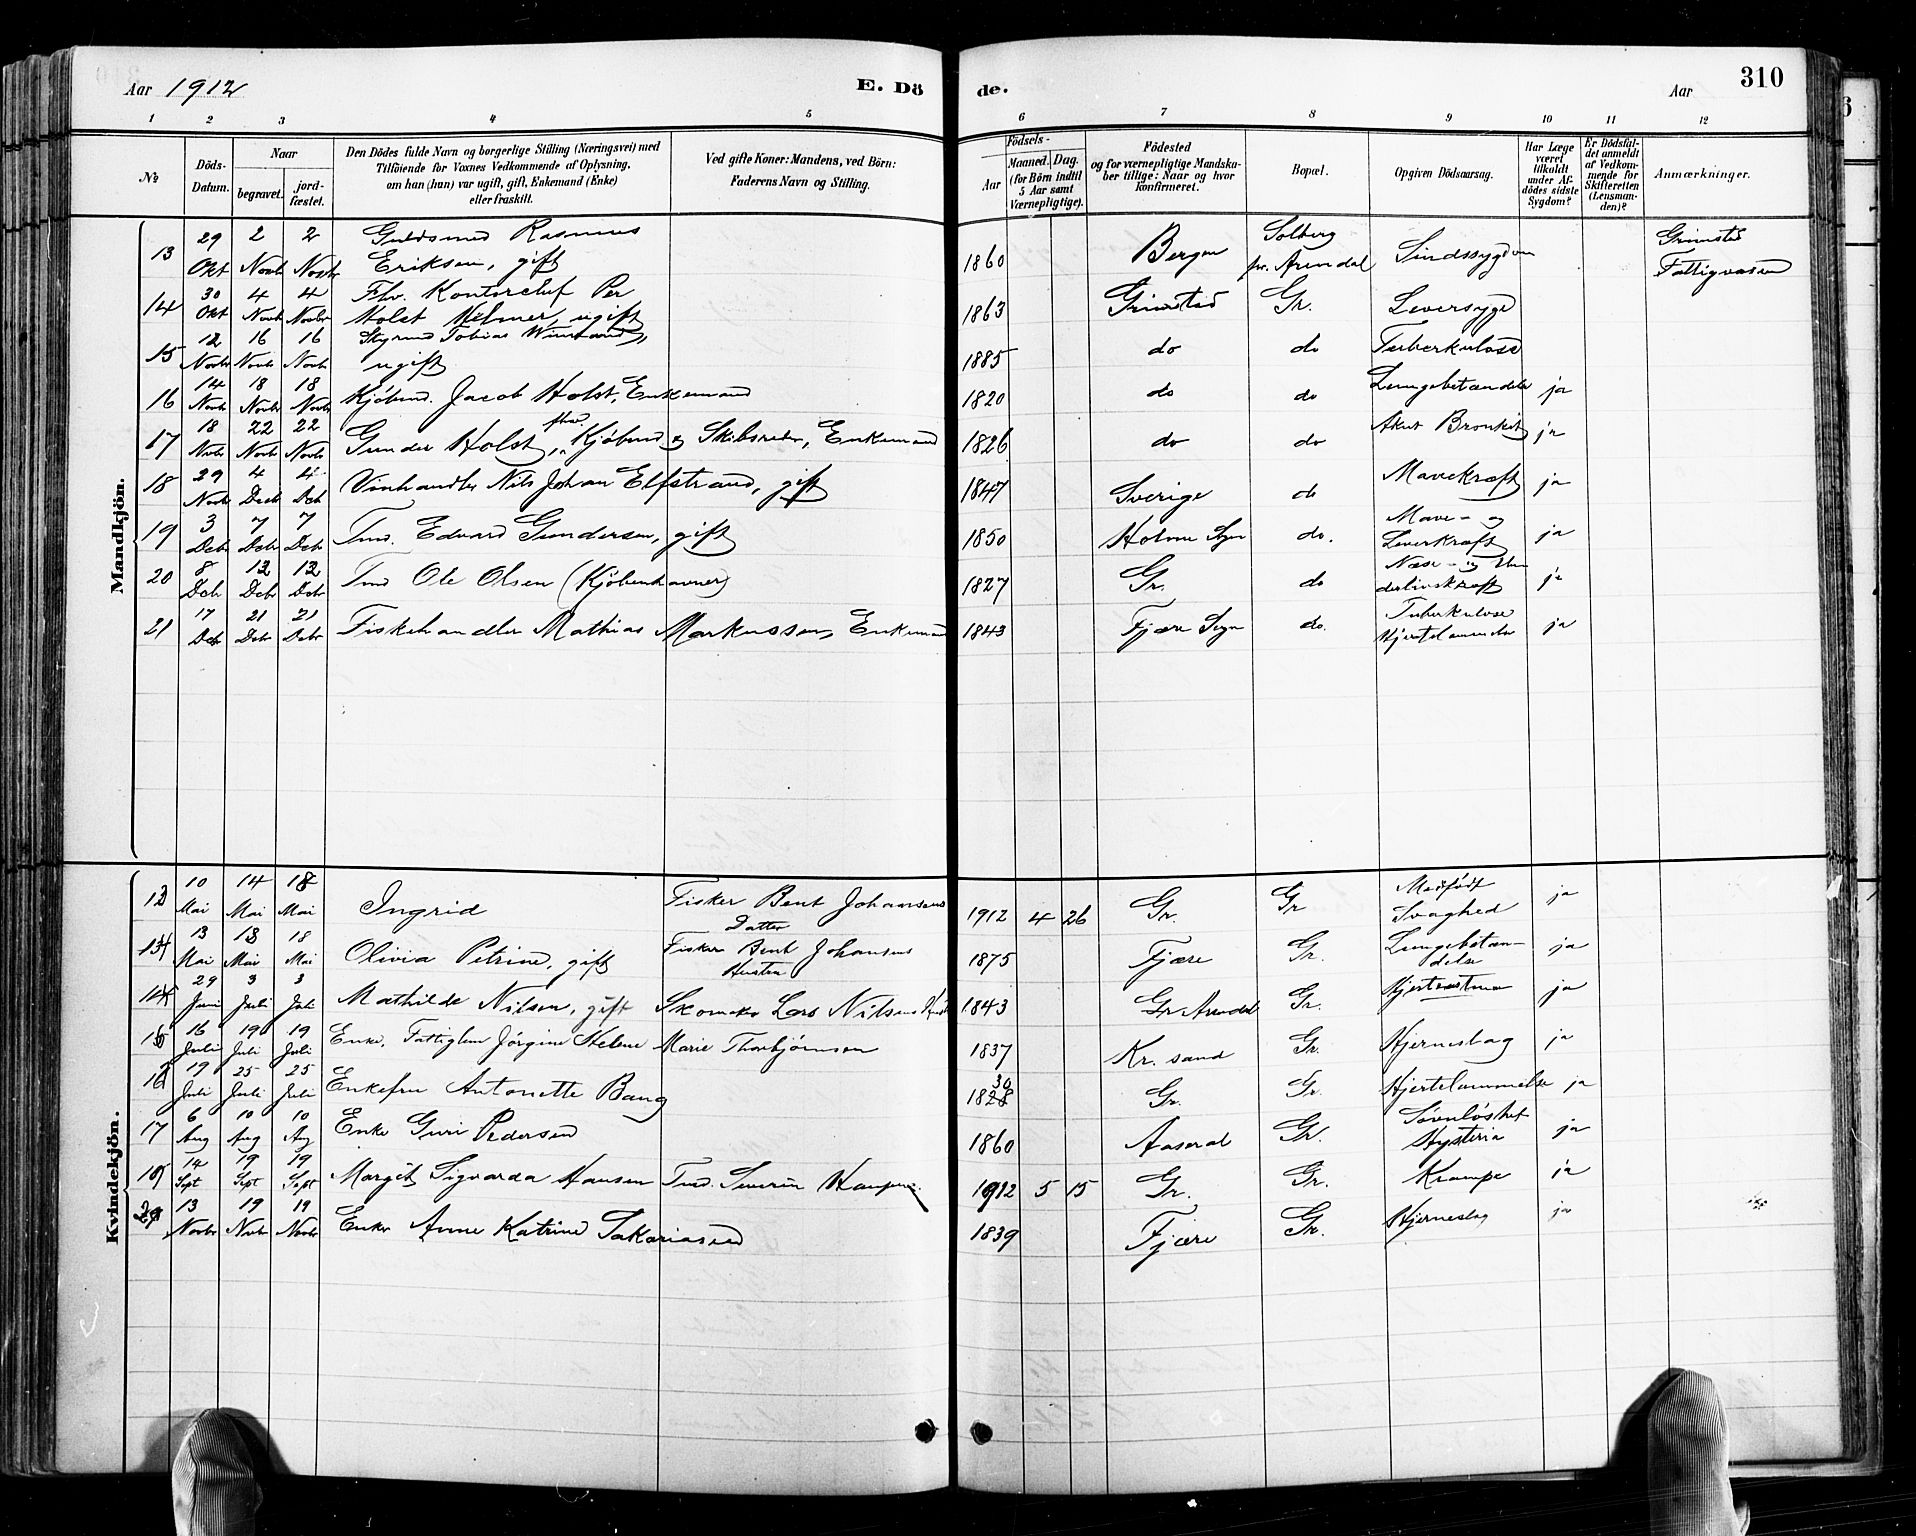 Aar 1912
E. Dö
de.
Aar
310
1 2 3 4 5 6 7 8 9 10 11 12
№
Döds-Datum.
Naar
begravet.
jord-fæstet.
Den Dödes fulde Navn og borgerlige Stilling (Næringsvei) med
Tilföiende for Voxnes Vedkommende af Oplysning,
om han (hun) var ugift, gift, Enkemand (Enke)
eller fraskilt.
Ved gifte Koner: Mandens, ved Börn:
Faderens Navn og Stilling.
Födsels-
Aar
Maaned. Dag.
(for Börn indtil
5 Aar samt
Værnepligtige).
Födested
og for værnepligtige Mandska-
ber tillige: Naar og hvor
konfirmeret.
Bopæl.
Opgiven Dödsaarsag.
Har Læge
været
tilkaldt
under Af-
dödes sidste
Sygdom?
Er Dödsfal-
det anmeldt
af Vedkom-
mende for
Skifteretten
(Lensman-
den)?
Anmærkninger.
Mandkjön.
13 29 Okt 2 Novbr 2 Novbr Guldsmed Rasmus Eriksen, gift 1860 Bergen Solberg pr. Arendal Sindssygdom Grimstad Fattigvæsen
14 30 Okt 4 Novbr 4 Novbr Fhv. Kontorchef Per Holst Helmer, ugift 1863 Grimstad Gr. Leversyge
15 12 Novbr 16 Novbr 16 Novbr Tobias ugift 1885 do do Tuberkulose
16 14 Novbr 18 Novbr 18 Novbr Kjöbmd. Jacob Holst, Enkemand 1820 do do Lungebetændelse ja
17 18 Novbr 22 Novbr 22 Novbr Gunder Holst, fhv. Kjöbmd. og Skibsreder, Enkemand 1826 do do Akut Bronkit ja
18 29 Novbr 4 Decbr 4 Dcb Vinhandler Nils Johan Elfstrand, gift 1847 Sverige do Mavekræft ja
19 3 Dcbr 7 Dcbr 7 Dcbr Tmd. Edvard Gundersen, gift 1850 Holme Sogn do. Mave- og Leverkræft ja
20 8 Dcbr 12 Dcbr 12 Dcbr Tmd Ole Olsen (Kjöbenhavner) 1827 Gr. do Næse- og ja
21 17 Dcbr 21 Dcbr 21 Dcbr Fiskehandler Mathias Markussen, Enkemand 1843 Fjære Sogn do. Tuberkulose Hjertelammelse ja
Kvindekjön.
12 10 Mai 14 Mai 18 Mai Ingrid Fisker Bent Johansens Datter 1912 4 26 Gr. Gr Medfödt Svaghed ja
13 13 Mai 18 Mai 18 Mai Olivia Petrine, gift Fisker Bent Johansens Hustru 1875 Fjære Gr. Lungebetæn-delse ja
14 29 Juni 3 Juli 3 Juli Mathilde Nilsen, gift Skomaker Lars Nilsens Hust 1843 Gr. Hjerteastma ja
15 16 Juli 19 Juli 19 Juli Enke, Fattiglem Jörgine Helene Marie Thorbjörnsen 1837 Kr. sand Gr. Hjerneslag ja
16 19 Juli 25 Juli 25 Juli Enkefru Antonette Bang 1828 30 Gr. Gr. Hjertelammelse ja
17 6 Aug 10 Aug 10 Aug Enke Guri Pedersen 1860 Aaseral Gr. Sövnlöshet Hysteria ja
19 14 Sept 19 Sept 19 Sept Margit Sigvarda Hansen Tmd. Severin Hansen 1912 5 15 Gr. Gr. Krampe ja
13 Novbr 19 Novbr 19 Novbr Enke Anne Katrine Sakariasen 1839 Fjære Gr. Hjerneslag ja